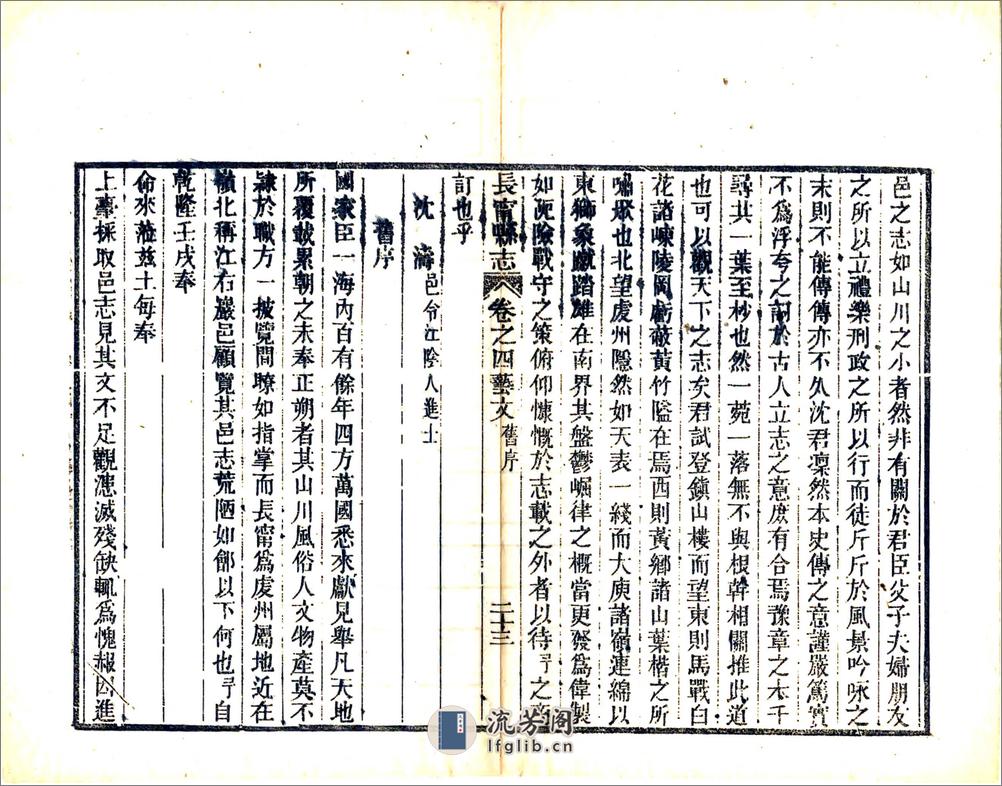 邑之志如山川之小者然非有關於君臣父子夫婦朋友
之所以立禮樂刑政之所以行而徒斤斤於風景吟咏之
末則不能傳傳亦不久沈君凜然本史傳之意謹嚴篤實
不爲浮夸之詞於古人立志之意庶有合焉豫章之木千
尋其一葉至杪也然一菀一落無不與根幹相關推此道
也可以觀天下之志矣君試登鎮山樓而望東則馬戰白
花諸崠陵岡虧蔽黃竹隘在焉西則黃鄉諸山葉楷之所
嘯聚也北望虔州隱然如天表一綫而大庾諸嶺連綿以
東獅象蹴踏雄在南界其盤鬱崛律之概當更發爲偉製
如阨險戰守之策俯仰慷慨於志載之外者以待予之
訂也乎
長甯縣志 卷之四藝文 舊序 二十三
沈濤 邑令江陰人進士
舊序
國家臣一海內百有餘年四方萬國悉來獻見舉凡天地
所覆載累朝之未奉正朔者其山川風俗人文物產莫不
隸於職方一披覽間暸如指掌而長甯爲虔州屬地近在
嶺北稱江右巖邑顧覽其邑志荒陋如鄶以下何也予自
乾隆壬戌奉
命來蒞兹土每奉
上臺採取邑志見其文不足觀漶滅殘缺輒爲愧赧因進
流芳閣
lfglib.cn